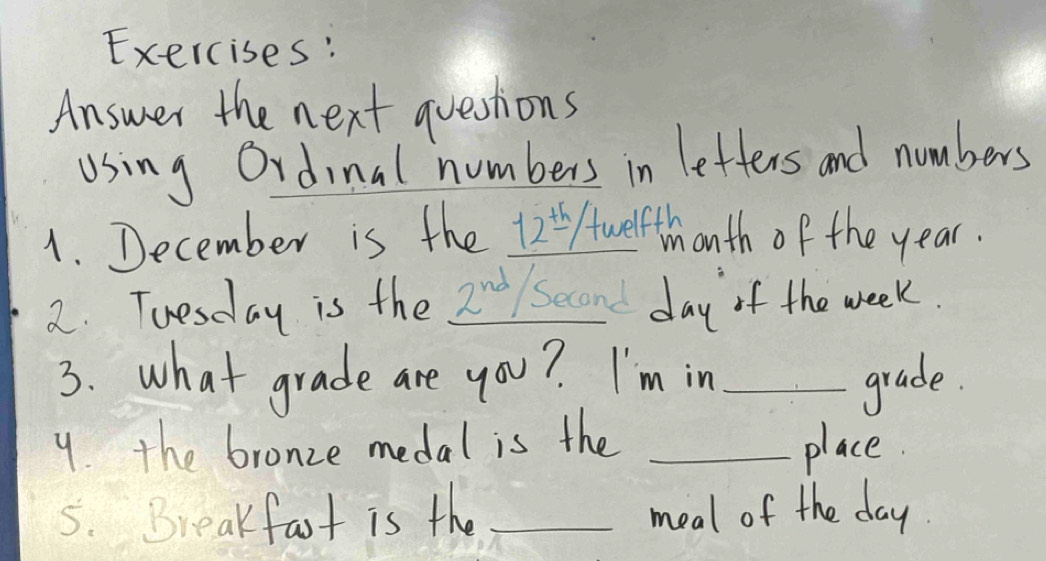 Exercises:
Answer the next questions
Using Ordinal numbers in letters and numbers
1. December is the 12th/twelfth month of the year.
2. Tuesday is the 2nd/Second day of the week.
3. What grade are you? I'm in _____ grade.
4. the bronze medal is the _____ place.
5. Breakfast is the _____ meal of the day.